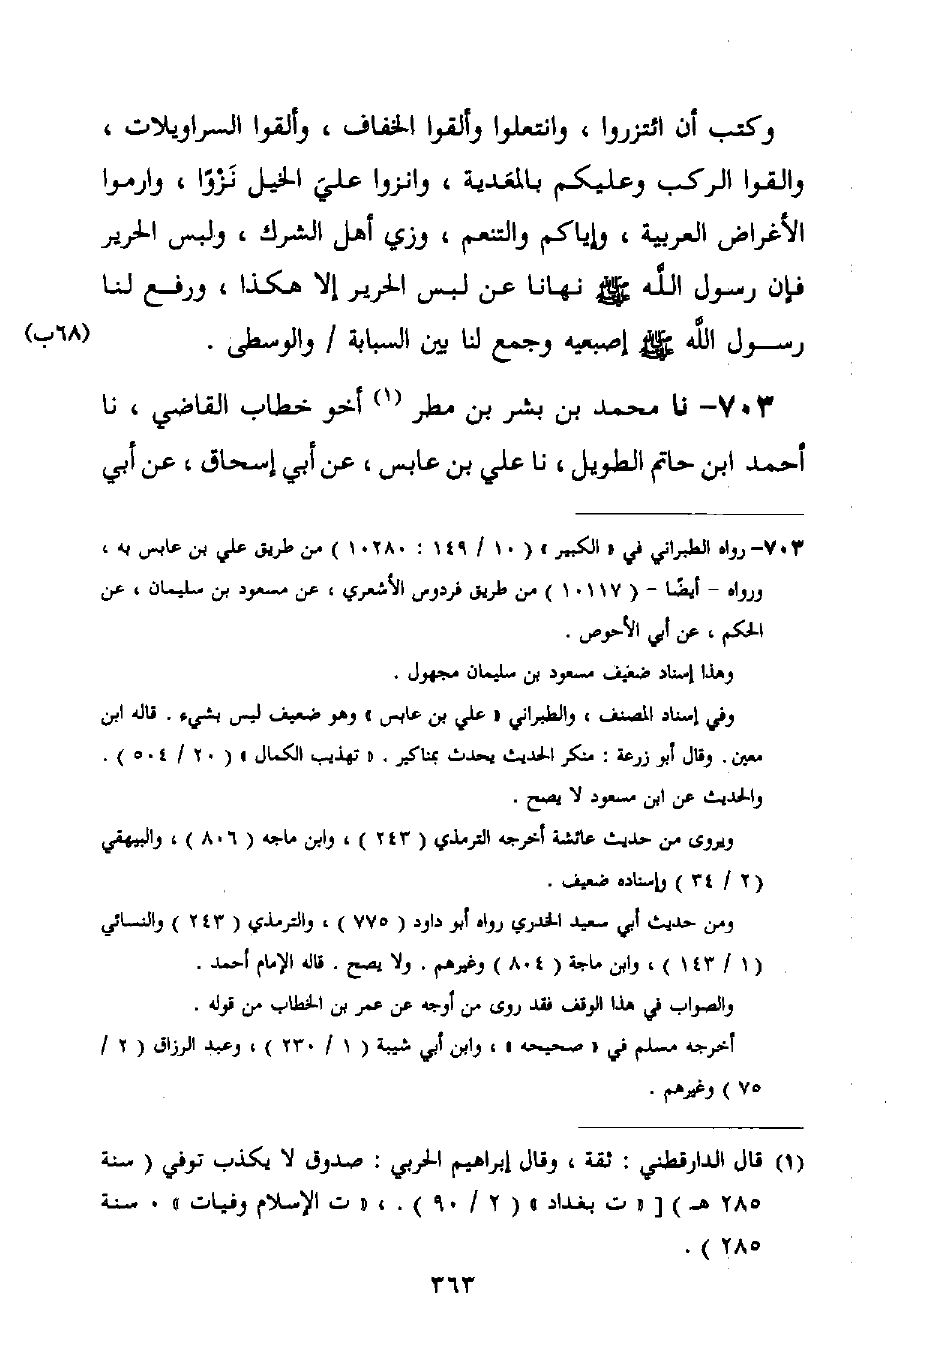 وكتب أن ائتزروا ، وانتعلوا وألقوا الخفاف ، وألقوا السراويلات ،
والقوا الركب وعليكم بالمَعَدية ، وانزوا عليَ الخيل نَزْوًا ، وارموا
الأغراض العربية ، وإياكم والتنعم ، وزي أهل الشرك ، ولبس الحرير
فإن رسول اللَّه ﷺ نهانا عن لبس الحرير إلا هكذا ، ورفع لنا
رسول اللَّه ﷺ إصبعيه وجمع لنا بين السبابة / والوسطى . (٦٨ب)
٧٠٣- نا محمد بن بشر بن مطر (١) أخو خطاب القاضي ، نا
أحمد ابن حاتم الطويل ، نا علي بن عابس ، عن أبي إسحاق ، عن أبي
٧٠٣- رواه الطبراني في « الكبير » ( ١٠ / ١٤٩ : ١٠٢٨٠ ) من طريق علي بن عابس به ،
ورواه - أيضًا - ( ١٠١١٧ ) من طريق فردوس الأشعري ، عن مسعود بن سليمان ، عن
الحكم ، عن أبي الأحوص .
وهذا إسناد ضعيف مسعود بن سليمان مجهول .
وفي إسناد المصنف ، والطبراني « علي بن عابس » وهو ضعيف ليس بشيء . قاله ابن
معين . وقال أبو زرعة : منكر الحديث يحدث بمناكير . « تهذيب الكمال » ( ٢٠ / ٥٠٤ ) .
والحديث عن ابن مسعود لا يصح .
ويروى من حديث عائشة أخرجه الترمذي ( ٢٤٣ ) ، وابن ماجه ( ٨٠٦ ) ، والبيهقي
( ٢ / ٣٤ ) وإسناده ضعيف .
ومن حديث أبي سعيد الخدري رواه أبو داود ( ٧٧٥ ) ، والترمذي ( ٢٤٣ ) والنسائي
( ١ / ١٤٣ ) ، وابن ماجة ( ٨٠٤ ) وغيرهم . ولا يصح . قاله الإمام أحمد .
والصواب في هذا الوقف فقد روى من أوجه عن عمر بن الخطاب من قوله .
أخرجه مسلم في « صحيحه » ، وابن أبي شيبة ( ١ / ٢٣٠ ) ، وعبد الرزاق ( ٢ /
٧٥ ) وغيرهم .
(١) قال الدارقطني : ثقة ، وقال إبراهيم الحربي : صدوق لا يكذب توفي ( سنة
٢٨٥ هـ ) [ « ت بغداد » ( ٢ / ٩٠ ) . ، « ت الإسلام وفيات » ٠ سنة
٢٨٥ ) .
٣٦٣